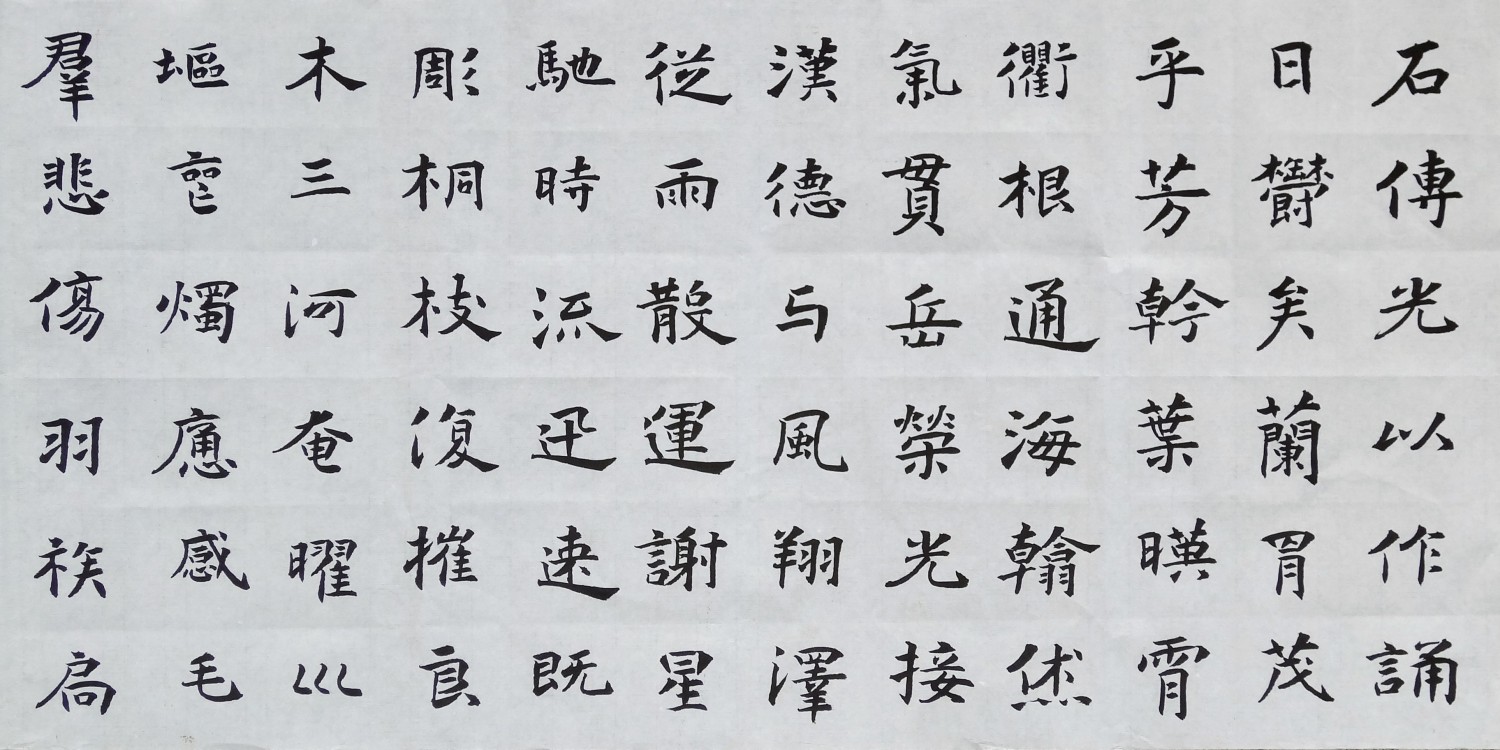 石傳光以作誦
日欝矣蘭胃茂
乎芳幹葉暎霄
衢根通海翰烋
氣貫岳榮光接
漢德与風翔澤
從雨散運謝星
馳時流迅速既
彫桐枝復摧良
木三河奄曜巛
塸燭應感毛
羣悲傷羽族扃